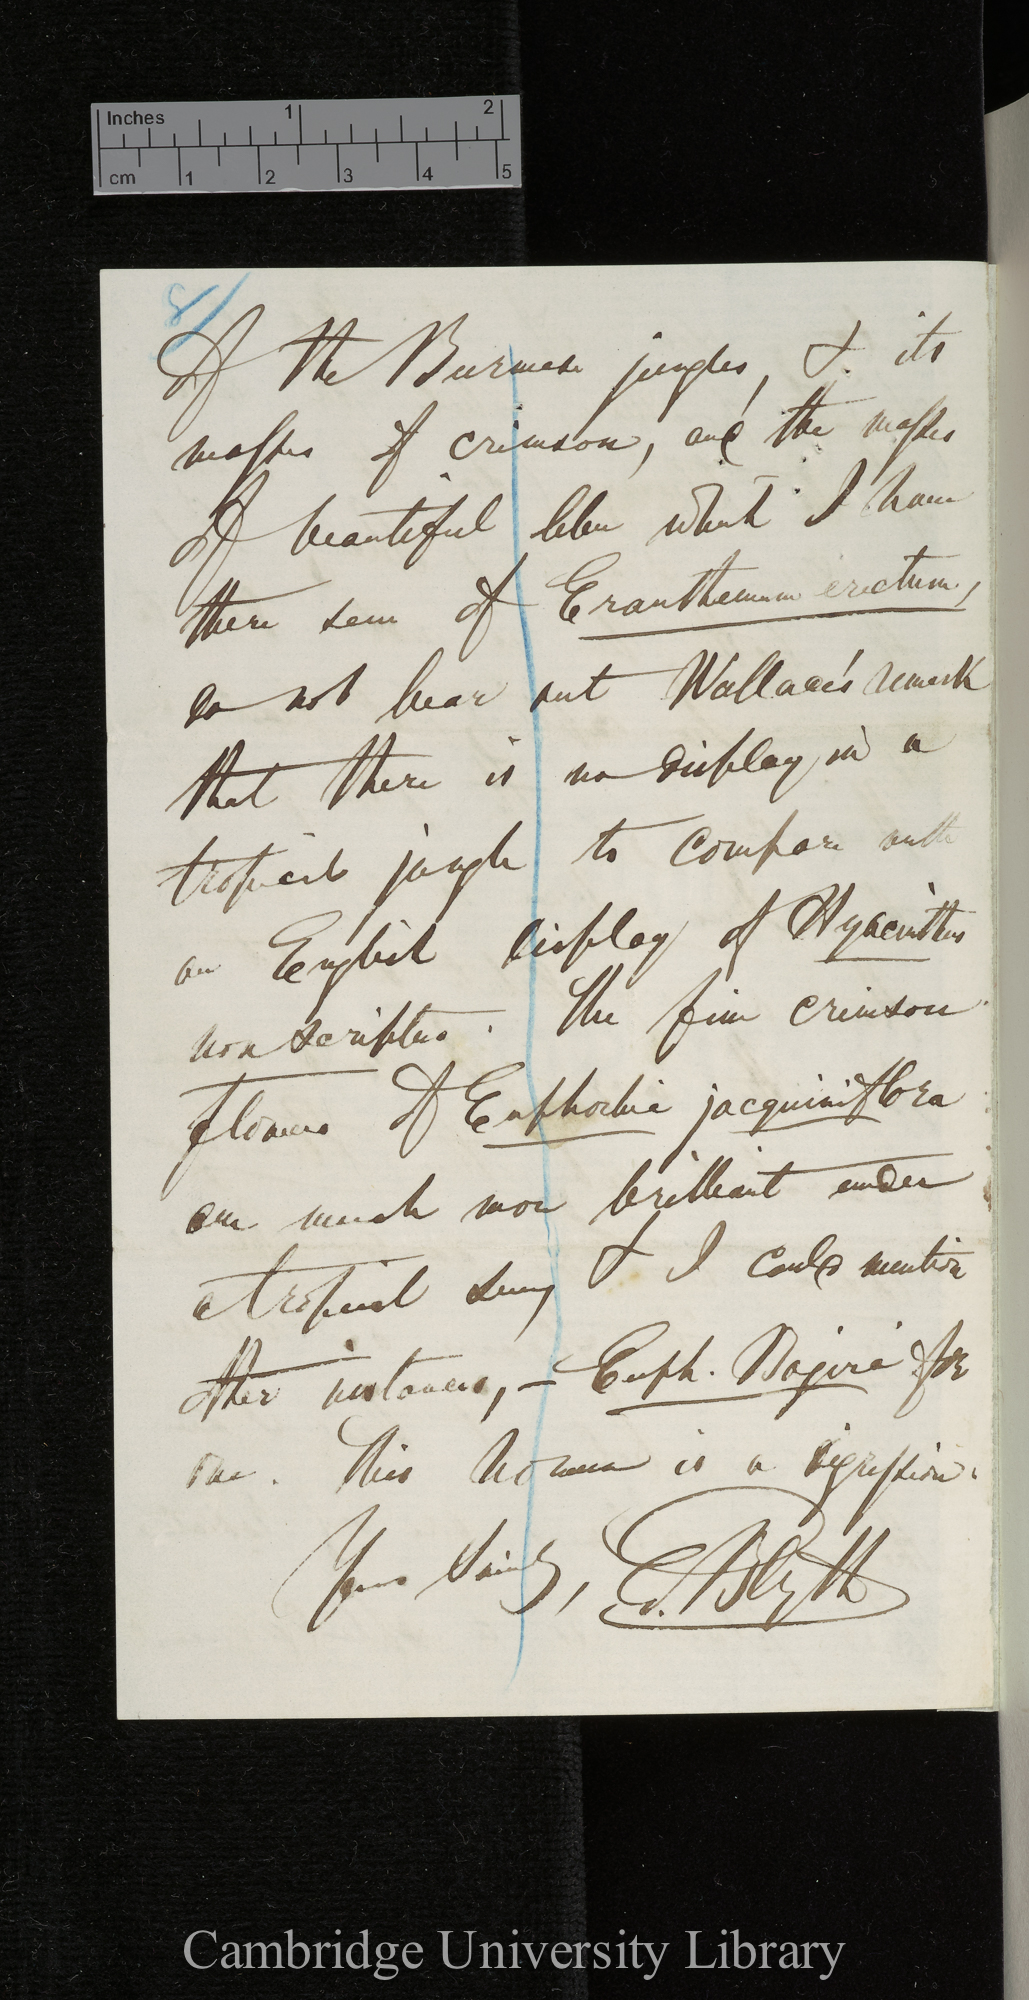 Inches 1 2
cm 1 2 3 4 5
8/
of the Burmese jungles, & its
masses of crimson, and the masses
of beautiful blue which I have
there seen of Eranthemum erectum,
do not bear out Wallace's remark
that there is no display in a
tropical jungle to compare with
an English display of Hyacinthus
non scriptus. The fine crimson
flowers of Euphorbia jacquiniflora
are much more brilliant under
a tropical sun, & I could mention
other instances, — Euph. Bojeri for
one. This however is a digression.
Yours Sincerely, E. Blyth
Cambridge University Library